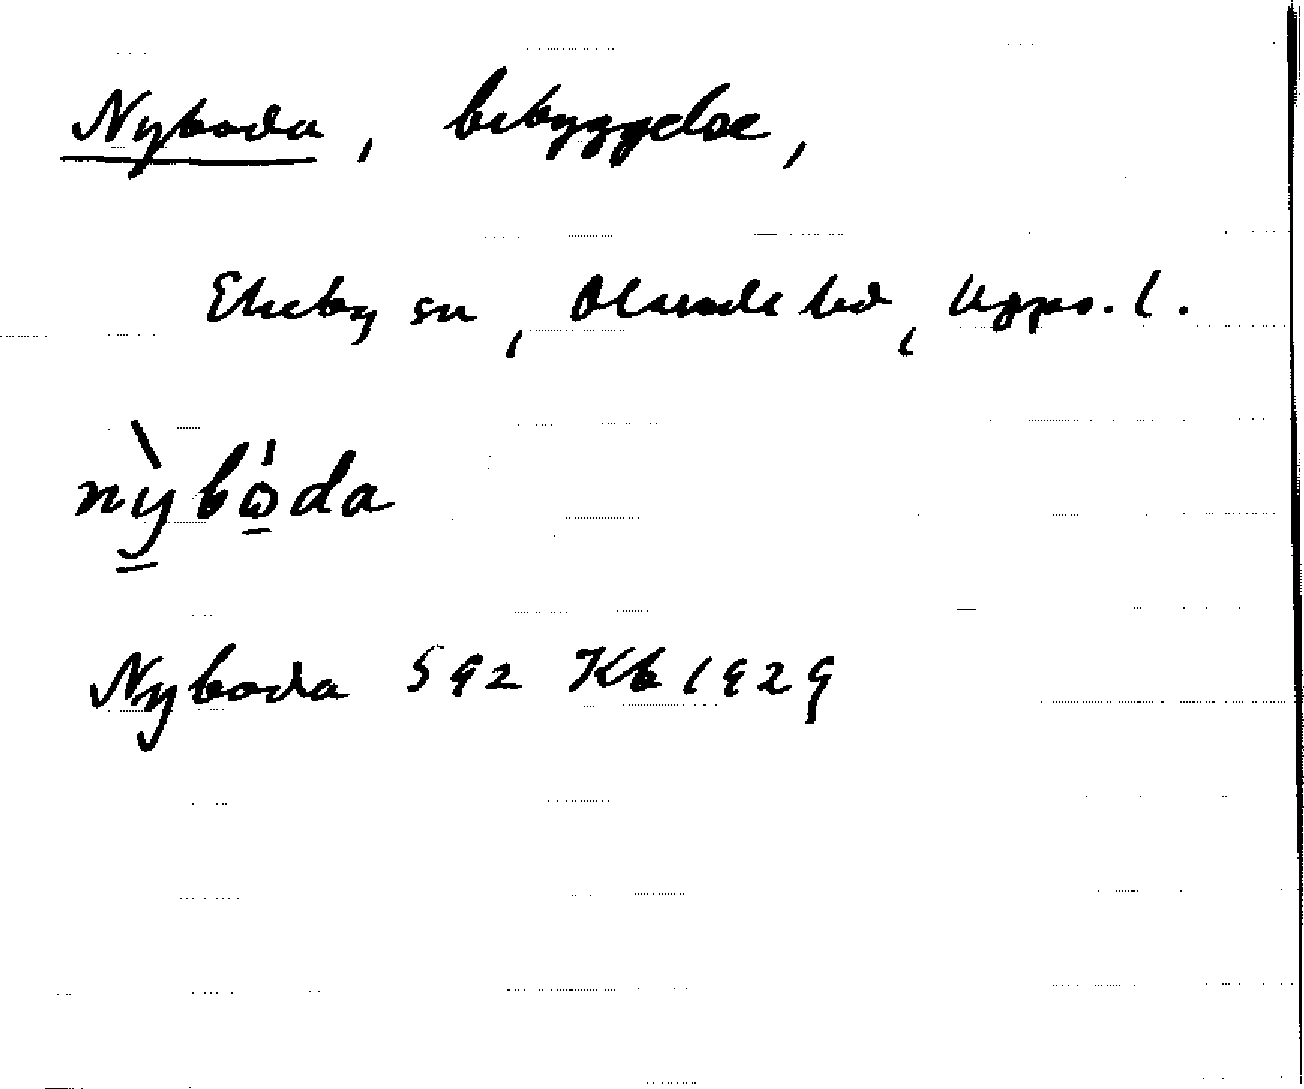 Nyboda, bebyggelse,
Ekeby sn, Olands hd, Upps. l.
nỳbo̱da
Nyboda 592 Kb 1929